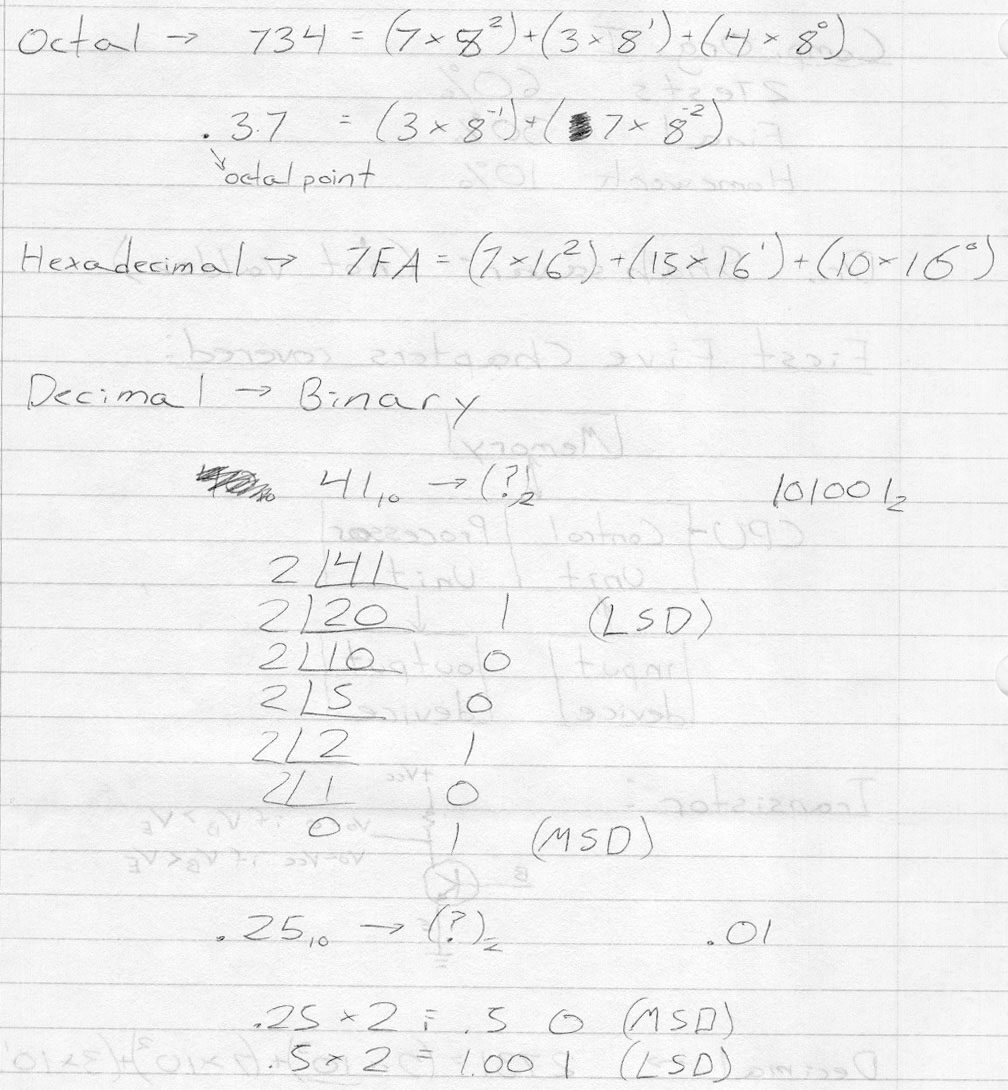 Octal → 734 = (7 × 8²) + (3 × 8¹) + (4 × 8⁰)
.37 = (3 × 8⁻¹) + (7 × 8⁻²)
octal point
Hexadecimal → 7FA = (7 × 16²) + (15 × 16¹) + (10 × 16⁰)
Decimal → Binary
41₁₀ → (?)₂ 101001₂
2 41
2 20 1 (LSD)
2 10 0
2 5 0
2 2 1
2 1 0
0 1 (MSD)
.25₁₀ → (?)₂ .01
.25 × 2 = .5 0 (MSD)
.5 × 2 = 1.00 1 (LSD)